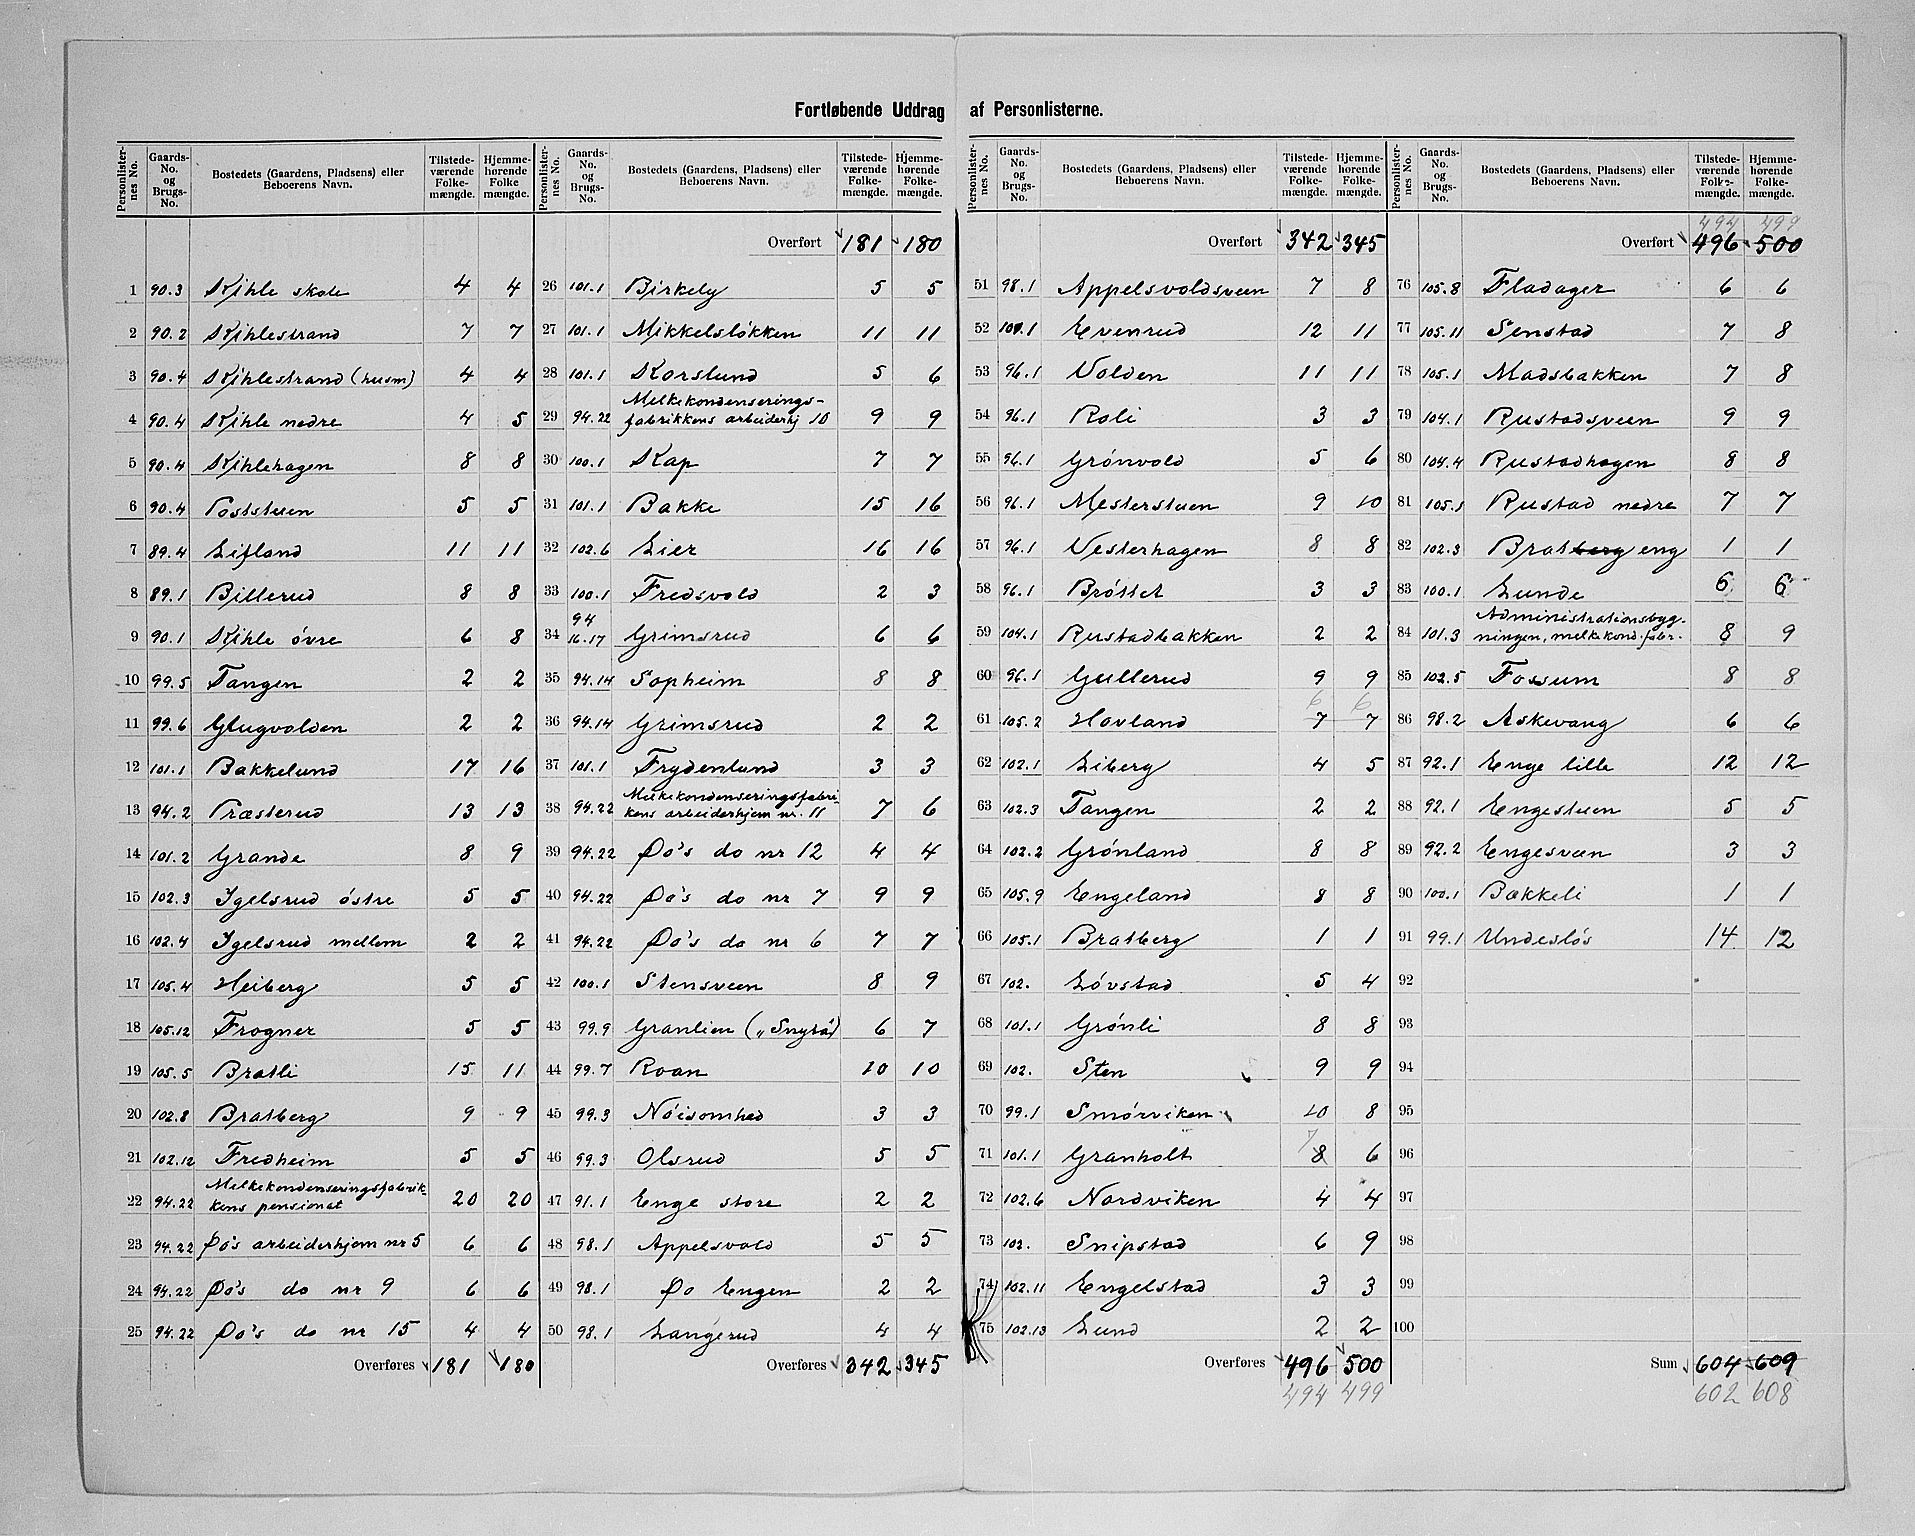 Fortløbende Uddrag af Personlisterne.
Personlister-nes No. Gaards-No. og Brugs-No. Bostedets (Gaardens, Pladsens) eller Beboerens Navn. Tilstede-værende Folke-mængde. Hjemme-hørende Folke mængde.
1 90.3 Kihle skole 4 4
2 90.2 Kihlestrand 7 7
3 90.4 Kihlestrand (husm) 4 4
4 90.4 Kihle nedre 4 5
5 90.4 Kihlehagen 8 8
6 90.4 Poststuen 5 5
7 89.4 Lifland 11 11
8 89.1 Billerud 8 8
9 90.1 Kihle övre 6 8
10 99.5 Tangen 2 2
11 99.6 Glugvolden 2 2
12 101.1 Bakkelund 17 16
13 94.2 Præsterud 13 13
14 101.2 Grande 8 9
15 102.3 Igelsrud östre 5 5
16 102.4 Igelsrud mellem 2 2
17 105.4 Heiberg 5 5
18 105.12 Frogner 5 5
19 105.5 Bratli 15 11
20 102.8 Bratberg 9 9
21 102.12 Fredheim 5 5
22 94.22 Melkekondenseringsfabrik-
kens pensionat 20 20
23 94.22 Do's arbeiderhjem nr 5 6 6
24 94.22 Do's do nr 9 6 6
25 94.22 Do's do nr 15 4 4
Overføres 181 180
Personlister-nes No. Gaards-No. og Brugs-No. Bostedets (Gaardens, Pladsens) eller Beboerens Navn. Tilstede-værende Folke-mængde. Hjemme-hørende Folke-mængde.
Overført 181 180
26 101.1 Birkely 5 5
27 101.1 Mikkelslökken 11 11
28 101.1 Korslund 5 6
29 94.22 Melkekondenserings-
fabrikkens arbeiderhj 10 9 9
30 100.1 Kap 7 7
31 101.1 Bakke 15 16
32 102.6 Lier 16 16
33 100.1 Fredsvold 2 3
34 94 16.17 Grimsrud 6 6
35 94.14 Sopheim 8 8
36 94.14 Grimsrud 2 2
37 101.1 Frydenlund 3 3
38 94.22 Melkekondenseringsfabri-
kens arbeiderhjem nr. 11 7 6
39 94.22 Do's do nr 12 4 4
40 94.22 Do's do nr 7 9 9
41 94.22 Do's do nr 6 7 7
42 100.1 Stensveen 8 9
43 99.9 Granlien („Snyrå) 6 7
44 99.7 Roan 10 10
45 99.3 Nöisomhed 3 3
46 99.3 Olsrud 5 5
47 91.1 Enge store 2 2
48 98.1 Appelsvold 5 5
49 98.1 Do Engen 2 2
50 98.1 Langerud 4 4
Overføres 342 345
Personlister-nes No. Gaards-No. og Brugs-No. Bostedets (Gaardens, Pladsens) eller Beboerens Navn. Tilstede-værende Folke-mængde. Hjemme-hørende Folke-mængde.
Overført 342 345
51 98.1 Appelsvoldsveen 7 8
52 101.1 Evenrud 12 11
53 96.1 Volden 11 11
54 96.1 Roli 3 3
55 96.1 Grönvold 5 6
56 96.1 Mesterstuen 9 10
57 96.1 Vesterhagen 8 8
58 96.1 Bröttet 3 3
59 104.1 Rustadbakken 2 2
60 96.1 Gullerud 9 9
6 6
61 105.2 Hovland 7 7
62 102.1 Liberg 4 5
63 102.3 Tangen 2 2
64 102.2 Grönland 8 8
65 105.9 Engeland 8 8
66 105.1 Bratberg 1 1
67 102. Lövstad 5 4
68 101.1 Grönli 8 8
69 102. Sten 9 9
70 99.1 Smörviken 10 8
7
71 101.1 Granholt 8 6
72 102.6 Nordviken 4 4
73 102. Snipstad 6 9
74 102.11 Engelstad 3 3
75 102.13 Lund 2 2
Overføres 496 500
494 499
Personlister-nes No. Gaards-No. og Brugs-No. Bostedets (Gaardens, Pladsens) eller Beboerens Navn. Tilstede-værende Folke-mængde. Hjemme-hørende Folke-mængde.
494 499
Overført 496 500
76 105.8 Fladager 6 6
77 105.11 Senstad 7 8
78 105.1 Madsbakken 7 8
79 104.1 Rustadsveen 9 9
80 104.4 Rustadhagen 8 8
81 105.1 Rustad nedre 7 7
82 102.3 Bratberg eng 1 1
83 100.1 Lunde 6 6
84 101.3 Administrationsbyg-
ningen, melkekond.fabr. 8 9
85 102.5 Fossum 8 8
86 98.2 Askevang 6 6
87 92.1 Enge lille 12 12
88 92.1 Engestuen 5 5
89 92.2 Engesveen 3 3
90 100.1 Bakkeli 1 1
91 99.1 Undeslös 14 12
92
93
94
95
96
97
98
99
100
Sum 604 609
602 608